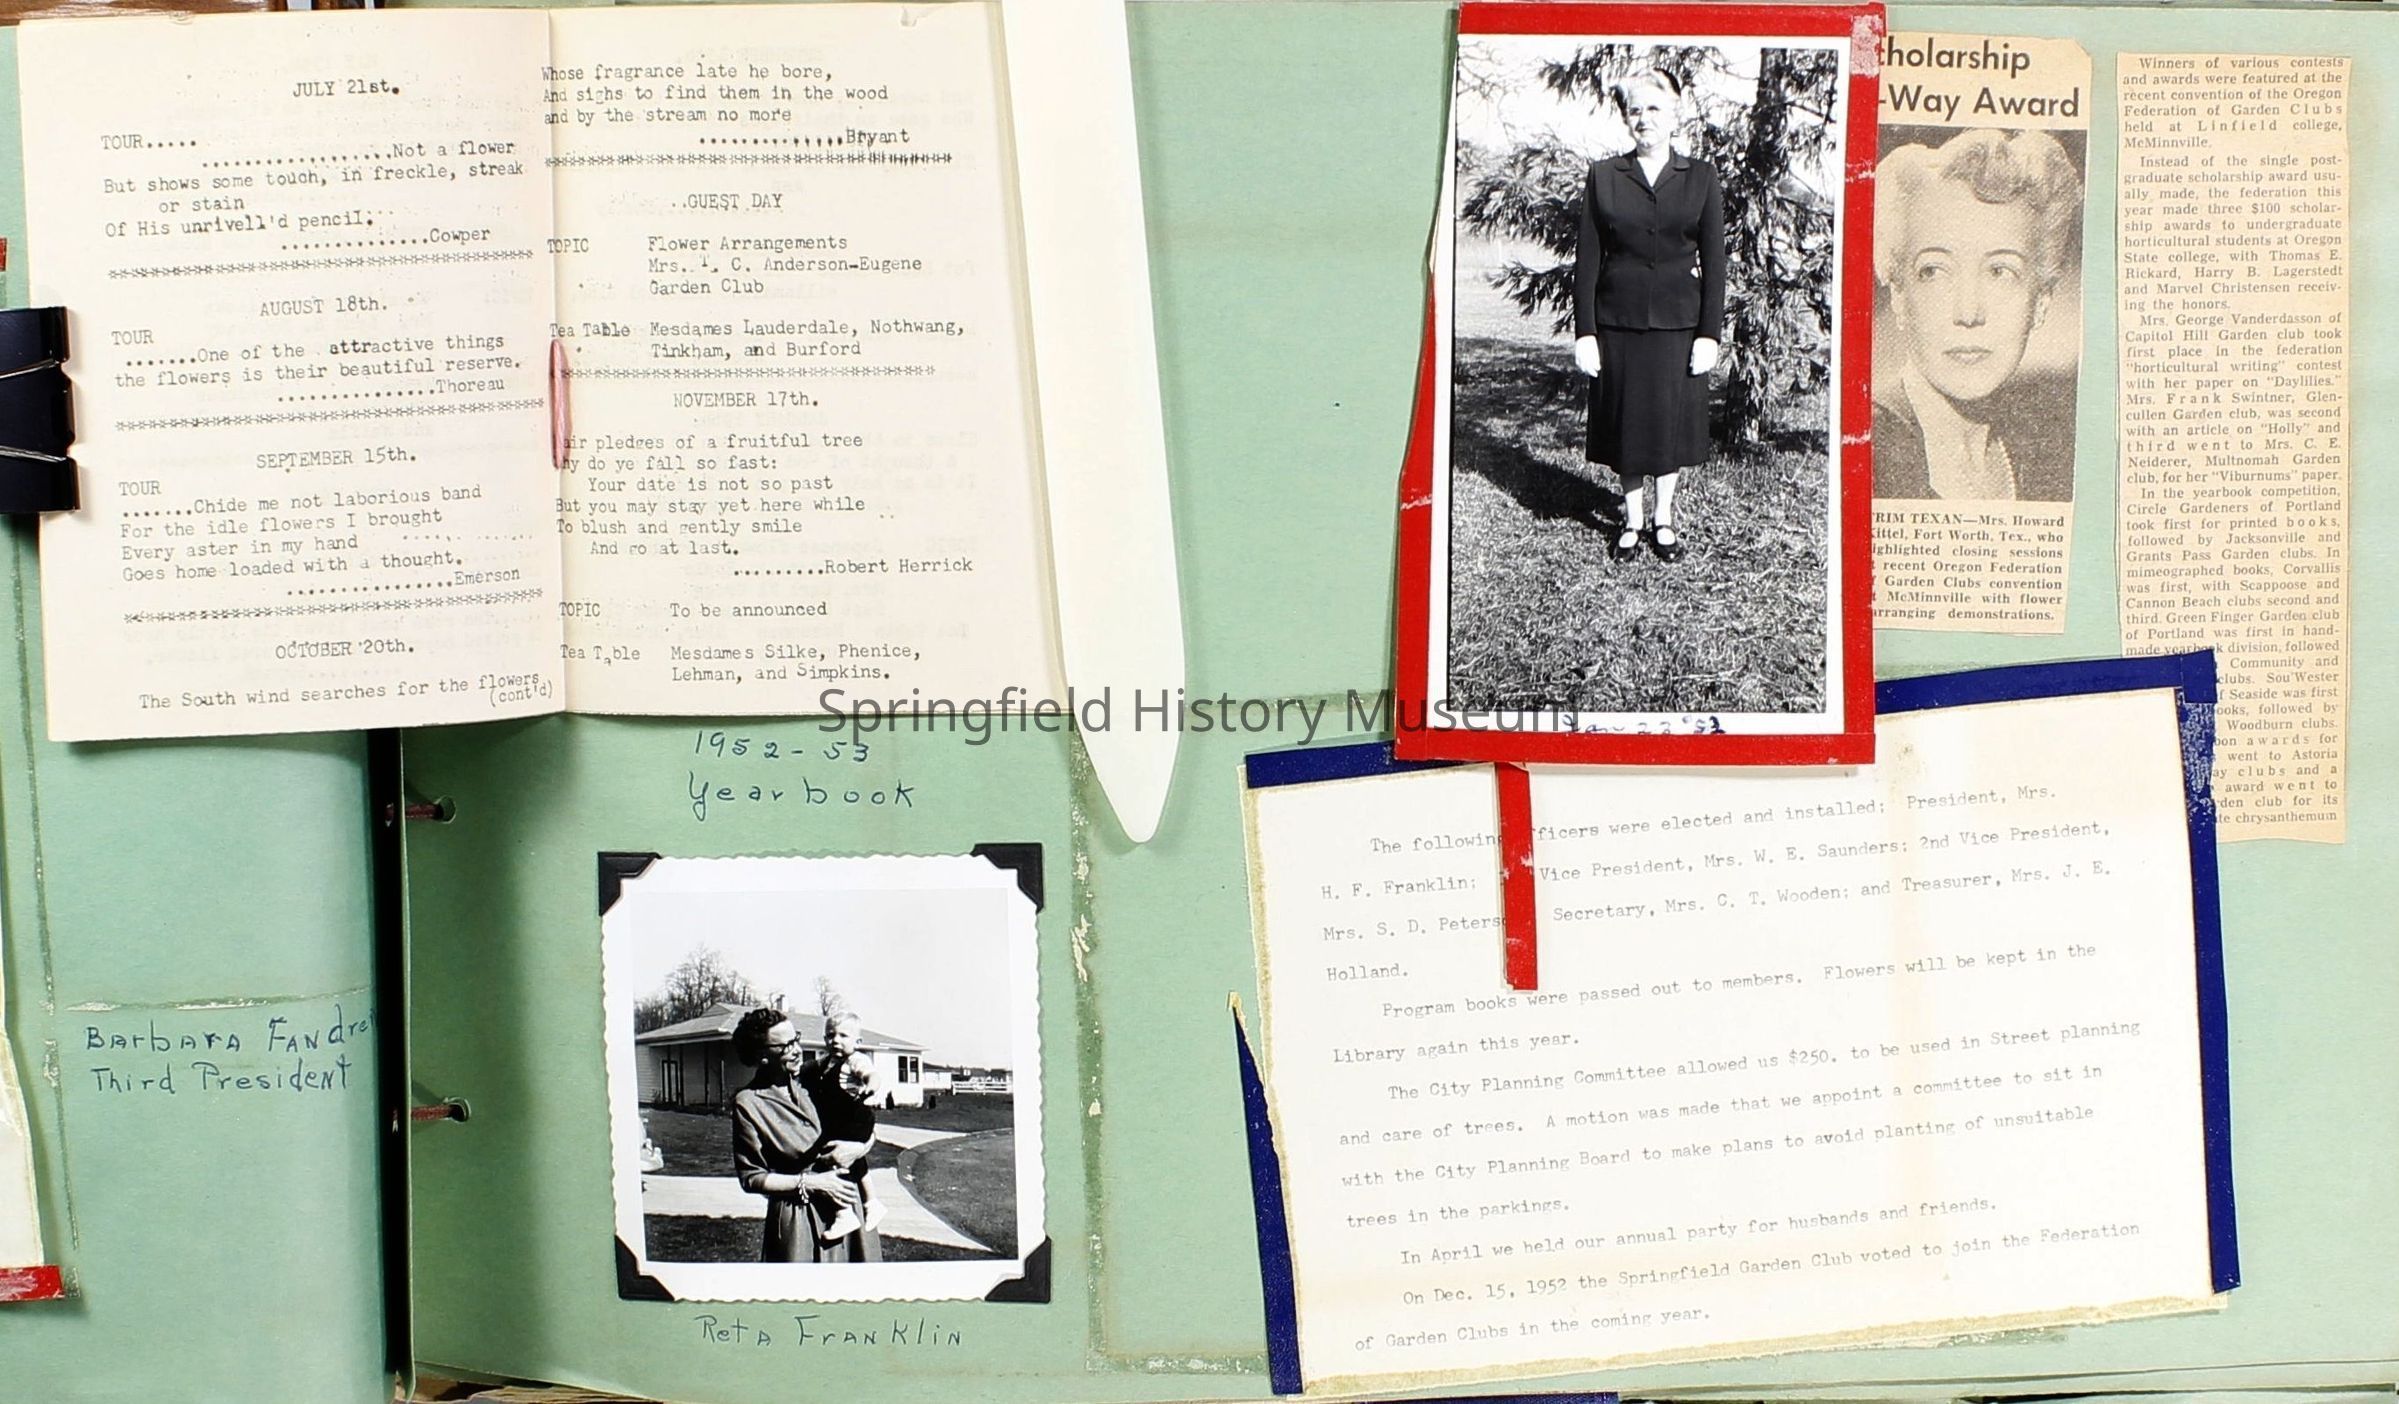 JULY 21st.
TOUR.....
..................Not a flower
But shows some touch, in freckle, streak
or stain
Of His unrivell'd pencil.
..............Cowper
****************************************
AUGUST 18th.
TOUR
.......One of the attractive things
the flowers is their beautiful reserve.
...............Thoreau
****************************************
SEPTEMBER 15th.
TOUR
.......Chide me not laborious band
For the idle flowers I brought
Every aster in my hand
Goes home loaded with a thought.
...............Emerson
****************************************
OCTOBER 20th.
The South wind searches for the flowers
(cont'd)
Whose fragrance late he bore,
And sighs to find them in the wood
and by the stream no more
..............Bryant
****************************************
GUEST DAY
TOPIC Flower Arrangements
Mrs. C. Anderson-Eugene
Garden Club
Tea Table Mesdames Lauderdale, Nothwang,
Tinkham, and Burford
****************************************
NOVEMBER 17th.
air pledges of a fruitful tree
hy do ye fall so fast:
Your date is not so past
But you may stay yet here while
To blush and gently smile
And go at last.
.........Robert Herrick
TOPIC To be announced
Tea Table Mesdames Silke, Phenice,
Lehman, and Simpkins.
1952-53
Yearbook
Barbara Fandre
Third President
Reta Franklin
Springfield History Museum
Jan 22 '53
cholarship
-Way Award
TRIM TEXAN—Mrs. Howard
Kittel, Fort Worth, Tex., who
ighlighted closing sessions
recent Oregon Federation
f Garden Clubs convention
t McMinnville with flower
arranging demonstrations.
Winners of various contests
and awards were featured at the
recent convention of the Oregon
Federation of Garden Clubs
held at Linfield college,
McMinnville.
Instead of the single post-
graduate scholarship award usu-
ally made, the federation this
year made three $100 scholar-
ship awards to undergraduate
horticultural students at Oregon
State college, with Thomas E.
Rickard, Harry B. Lagerstedt
and Marvel Christensen receiv-
ing the honors.
Mrs. George Vanderdasson of
Capitol Hill Garden club took
first place in the federation
"horticultural writing" contest
with her paper on "Daylilies."
Mrs. Frank Swintner, Glen-
cullen Garden club, was second
with an article on "Holly" and
third went to Mrs. C. E.
Neiderer, Multnomah Garden
club, for her "Viburnums" paper.
In the yearbook competition,
Circle Gardeners of Portland
took first for printed books,
followed by Jacksonville and
Grants Pass Garden clubs. In
mimeographed books, Corvallis
was first, with Scappoose and
Cannon Beach clubs second and
third. Green Finger Garden club
of Portland was first in hand-
made yearbook division, followed
Community and
clubs. Sou'Wester
f Seaside was first
ooks, followed by
Woodburn clubs.
bon awards for
went to Astoria
ay clubs and a
award went to
rden club for its
te chrysanthemum
The following fficers were elected and installed; President, Mrs.
H. F. Franklin; Vice President, Mrs. W. E. Saunders; 2nd Vice President,
Mrs. S. D. Peters Secretary, Mrs. C. T. Wooden; and Treasurer, Mrs. J. E.
Holland.
Program books were passed out to members. Flowers will be kept in the
Library again this year.
The City Planning Committee allowed us $250. to be used in Street planning
and care of trees. A motion was made that we appoint a committee to sit in
with the City Planning Board to make plans to avoid planting of unsuitable
trees in the parkings.
In April we held our annual party for husbands and friends.
On Dec. 15, 1952 the Springfield Garden Club voted to join the Federation
of Garden Clubs in the coming year.